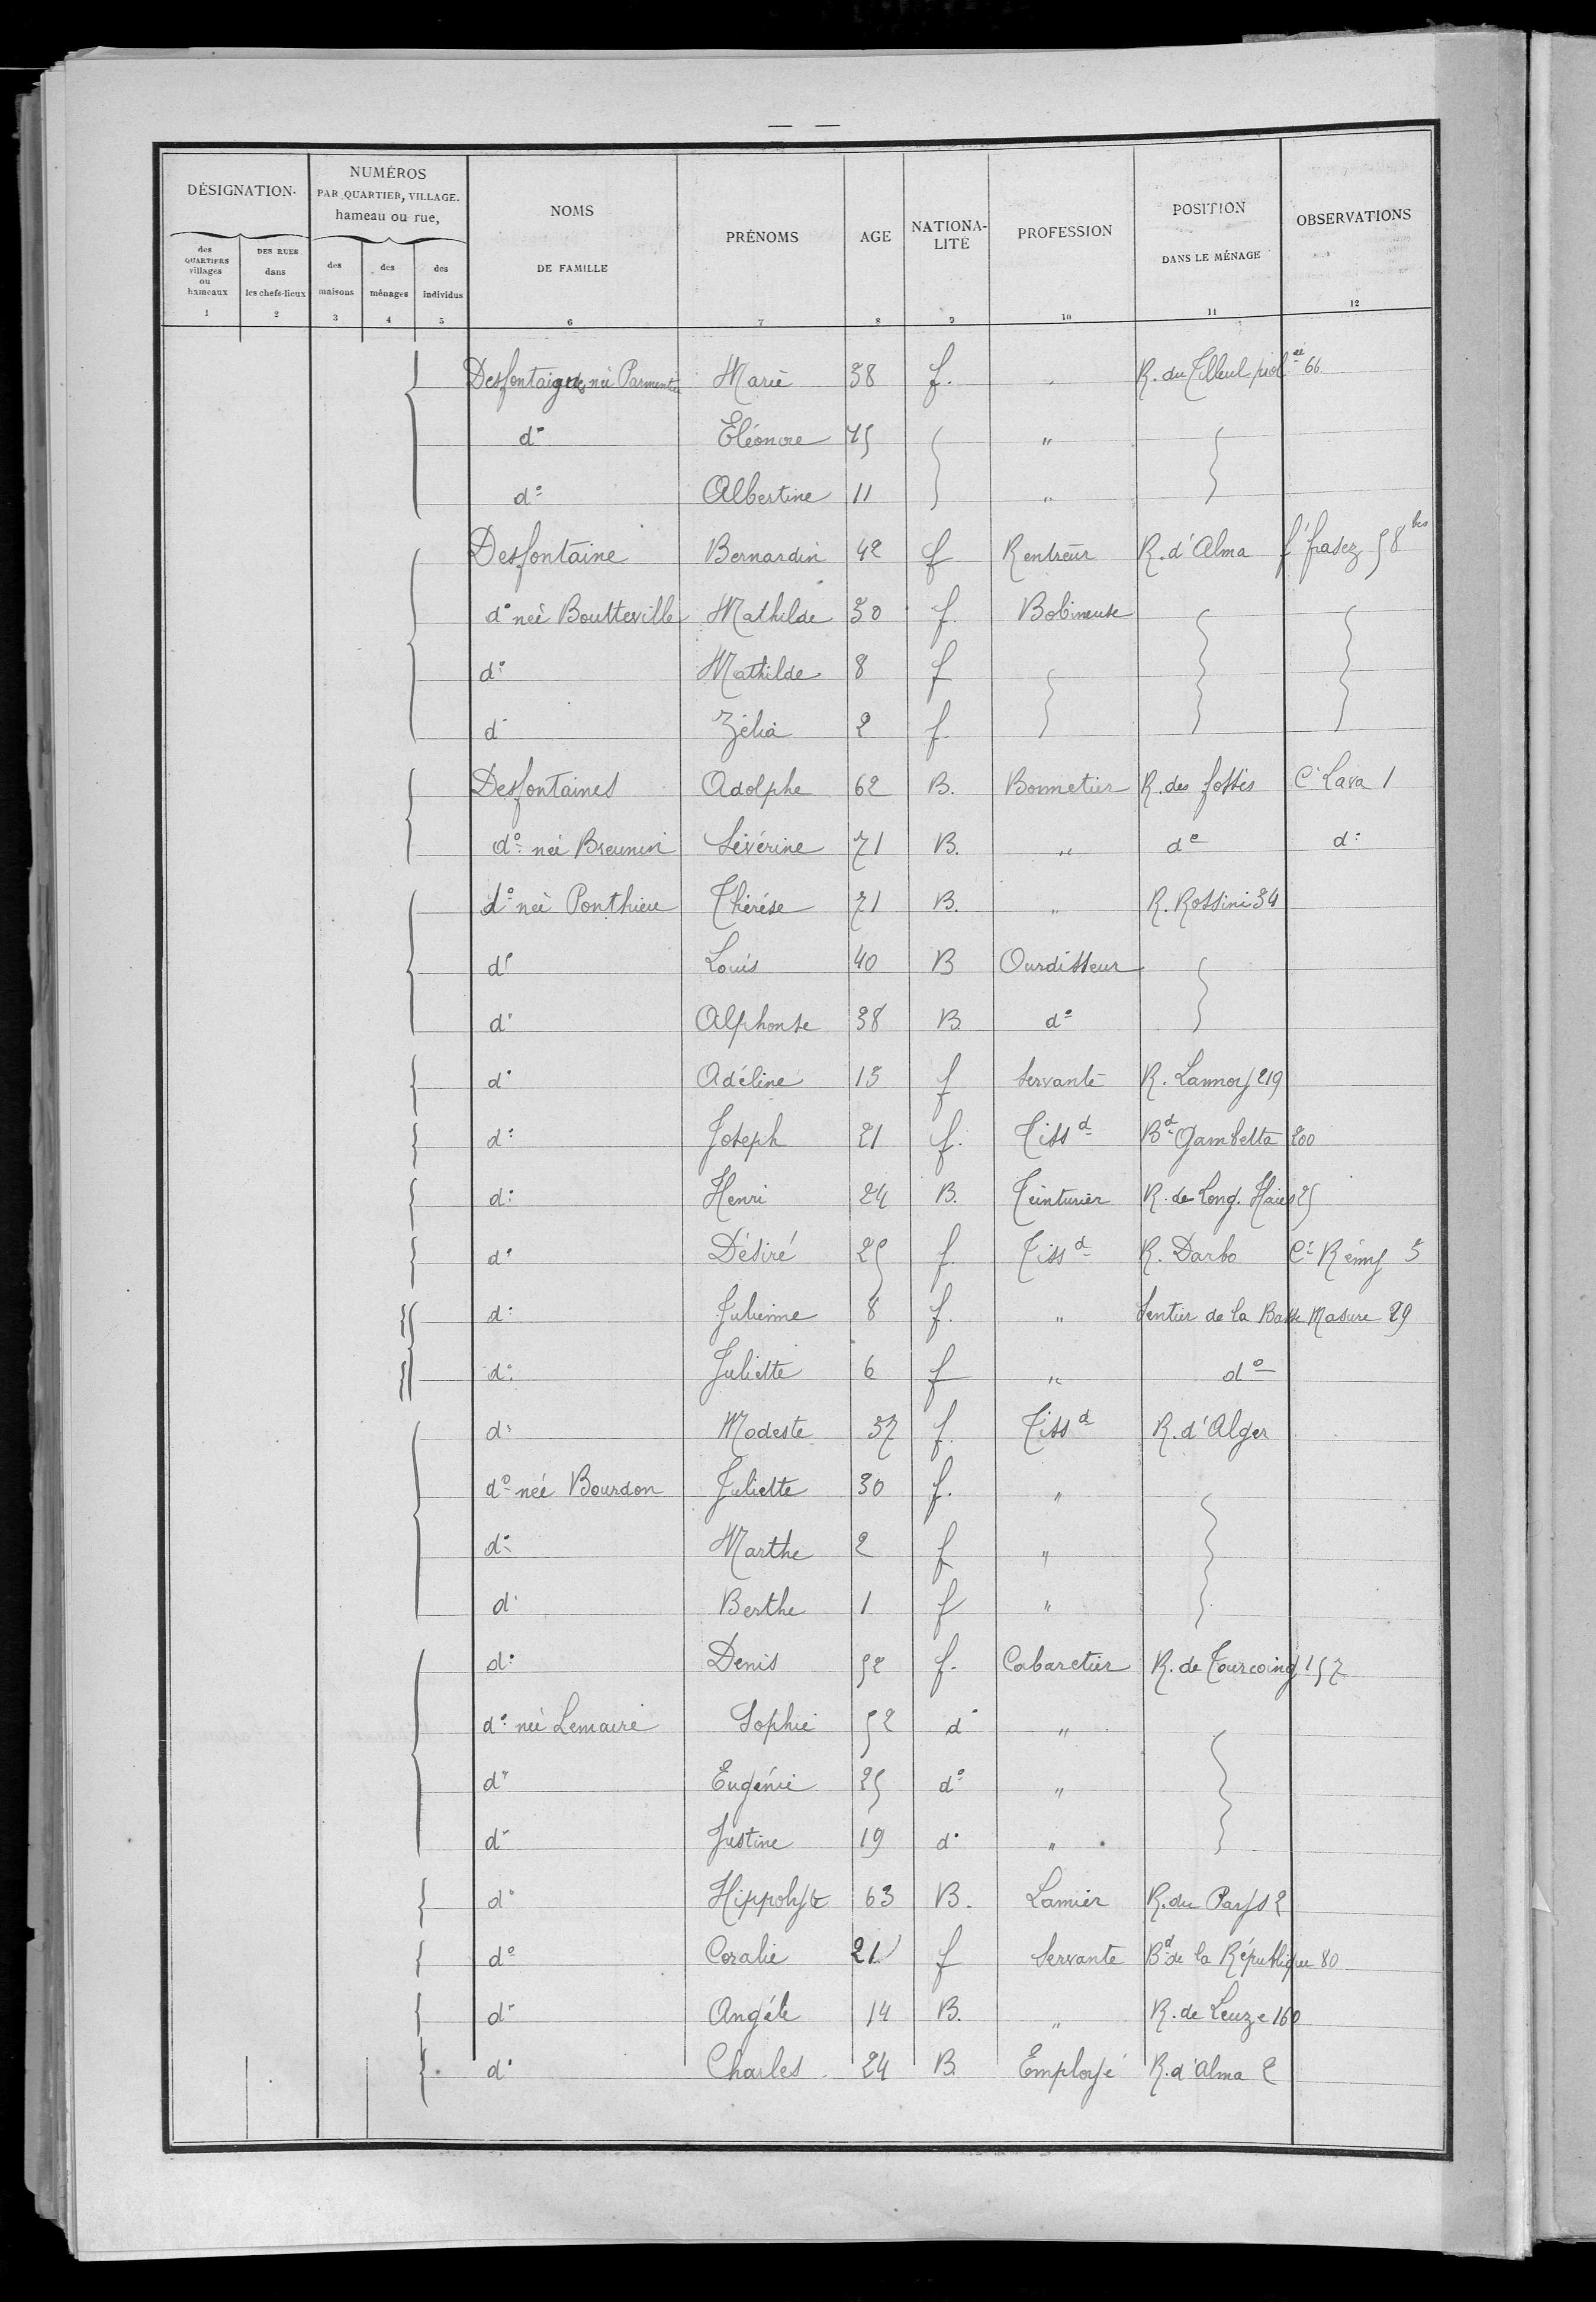 DÉSIGNATION
NUMÉROS
PAR QUARTIER, VILLAGE.
hameau ou rue,
NOMS
DE FAMILLE
PRÉNOMS
AGE
NATIONA-
LITÉ
PROFESSION
POSITION
DANS LE MÉNAGE
OBSERVATIONS
des QUARTIERS villages ou hameaux
DES RUES dans les chefs-lieux
des maisons
des ménages
des individus
1 2 3 4 5 6 7 8 9 10 11 12
Desfontaignes née Parmentier Marie 38 f. " R. du Tilleul prol ée 66
d° Eléonore 75 "
d° Albertine 11 "
Desfontaine Bernardin 42 f Rentreur R. d'Alma f' frasez 58 bis
d° neé Boutteville Mathilde 30 f. Bobineuse
d° Mathilde 8 f
d° Zélia 2 f.
Desfontaines Adolphe 62 B. Bonnetier R. des fossés C. Lava 1
d° neé Breunin Sévérine 71 B. " d° d°
d° neé Ponthieu Thérèse 71 B. " R. Rossini 34
d° Louis 40 B Ourdisseur
d° Alphonse 38 B. d°
d° Adéline 15 f Servante R. Lannoy 219
d° Joseph 21 f. Tiss d Bd Gambetta 200
d° Henri 24 B. Teinturier R. de Long. Haies 25
d° Désiré 25 f. Tiss d R. Darbo C. Rémy 5
d° Julienne 8 f. " Sentier de la Basse Masure 29
d° Juliette 6 f " d°
d° Modeste 37 f. Tiss d R. d'Alger
d° neé Bourdon Juliette 30 f. "
d° Marthe 2 f "
d° Berthe 1 f "
d° Denis 52 f. Cabaretier R. de Tourcoing 157
d° neé Lemaire Sophie 52 d° "
d° Eugénie 25 d° "
d° Justine 19 d° "
d° Hippolyte 63 B. Lamier R. du Pays 2
d° Coralie 21 f Servante Bd de la République 80
d° Angèle 14 B. " R. de Leuze 160
d° Charles 24 B. Employé R. d'Alma 2